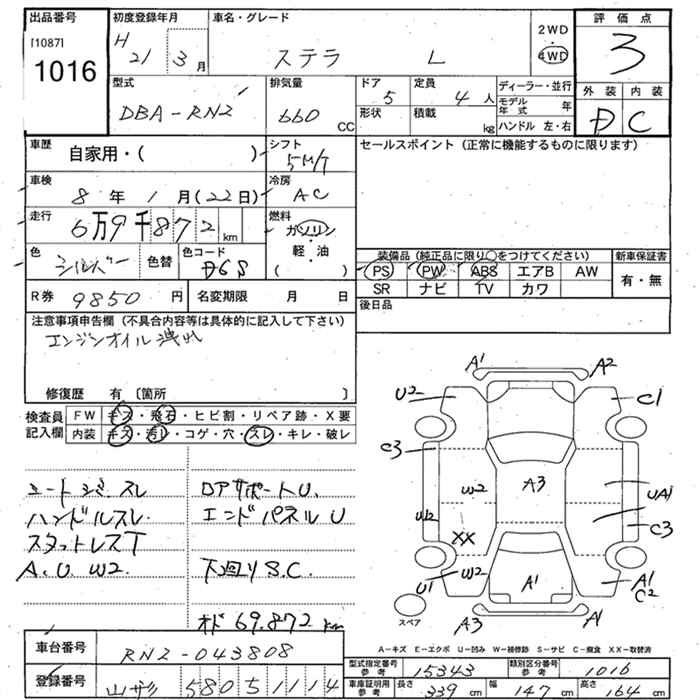 出品番号 初度登録年月 車名・グレード 評価点
[1087] 1016
H 21 3月 ステラ L
2WD
4WD
3
外装 内装
D C
型式 排気量 ドア 定員 ディーラー・並行
DBA-RN2 660 CC 5 4人
形状 積載 kg
モデル年式 年
ハンドル 左・右
車歴 シフト セールスポイント(正常に機能するものに限ります)
自家用・( ) 5M/T
車検 冷房
8年1月(22日) AC
走行 燃料
6万9千872km ガソリン
軽・油
( )
色 色替 色コード
シルバー D6S
装備品(純正品に限り○をつけてください) 新車保証書
PS PW ABS エアB AW 有・無
SR ナビ TV カワ
R券 9850円 名変期限 月 日
後日品
注意事項申告欄(不具合内容等は具体的に記入して下さい)
エンジンオイル洩れ
修復歴 有〔箇所 〕
検査員記入欄
FW キズ・飛石・ヒビ割・リペア跡・X要
内装 キズ・汚レ・コゲ・穴・スレ・キレ・破レ
シートシミ スレ
ハンドルスレ
スタットレスT
A.U.W2.
ロアサポートU.
エンドパネルU
下廻りS.C.
メド 69.872 km
A1 A2
U2 C1
C3
W2 A3 UA1
U2 XX C3
U1 W2 A1 A1
C2
A3 A1
スペア
A-キズ E-エクボ U-凹み W-補修跡 S-サビ C-腐食 XX-取替済
車台番号 RN2-043808
登録番号 山ガタ 580 5 1114
型式指定番号 参考 15343 類別区分番号 参考 1016
車庫証明用 参考 長さ 339cm 幅 147cm 高さ 164cm